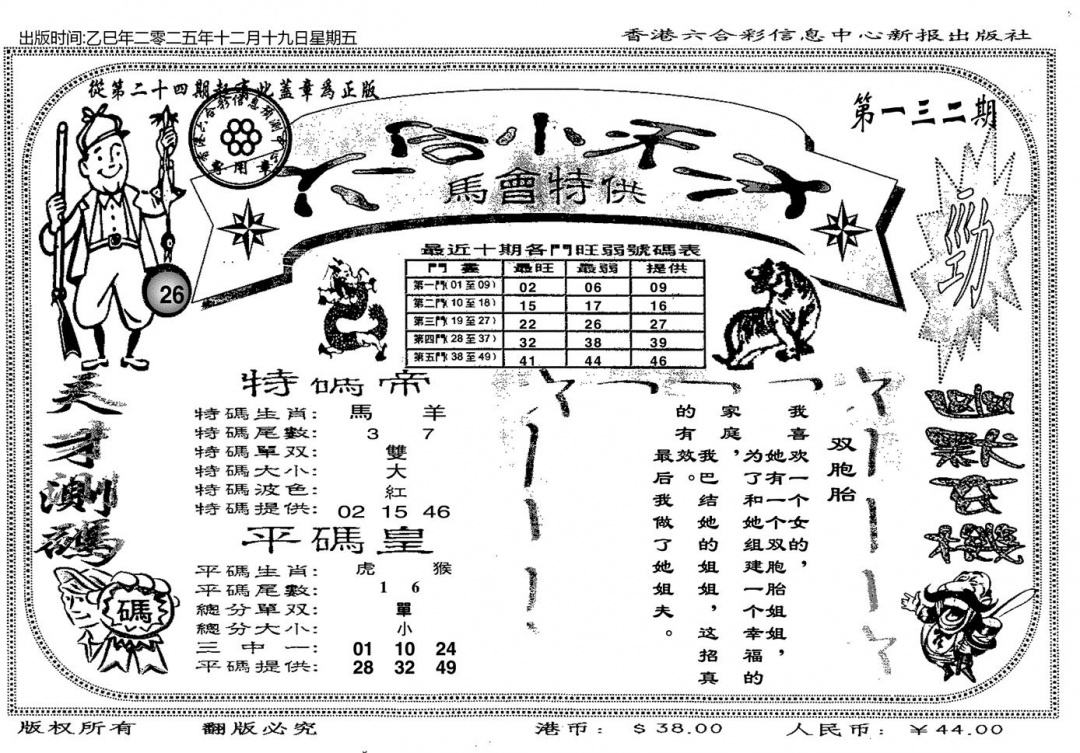 出版时间:乙巳年二零二五年十二月十九日星期五
香港六合彩信息中心新报出版社
從第二十四期起有此蓋章爲正版
專用章
第一三二期
馬會特供
勁
26
最近十期各門旺弱號碼表
門畫 最旺 最弱 提供
第一門(01至09) 02 06 09
第二門(10至18) 15 17 16
第三門(19至27) 22 26 27
第四門(28至37) 32 38 39
第五門(38至49) 41 44 46
天才測碼
碼
特碼帝
特碼生肖: 馬 羊
特碼尾數: 3 7
特碼單双: 雙
特碼大小: 大
特碼波色: 紅
特碼提供: 02 15 46
平碼皇
平碼生肖: 虎 猴
平碼尾數: 1 6
總分單双: 單
總分大小: 小
三中一: 01 10 24
平碼提供: 28 32 49
双胞胎
我喜欢一个女的,
她有一个双胞胎姐姐,
为了和她组建一个幸福的
家庭,我巴结她的姐姐,这招真
的有效。
最后我做了她姐夫。
幽默玄機
版权所有
翻版必究
港币: $38.00
人民币: ¥44.00